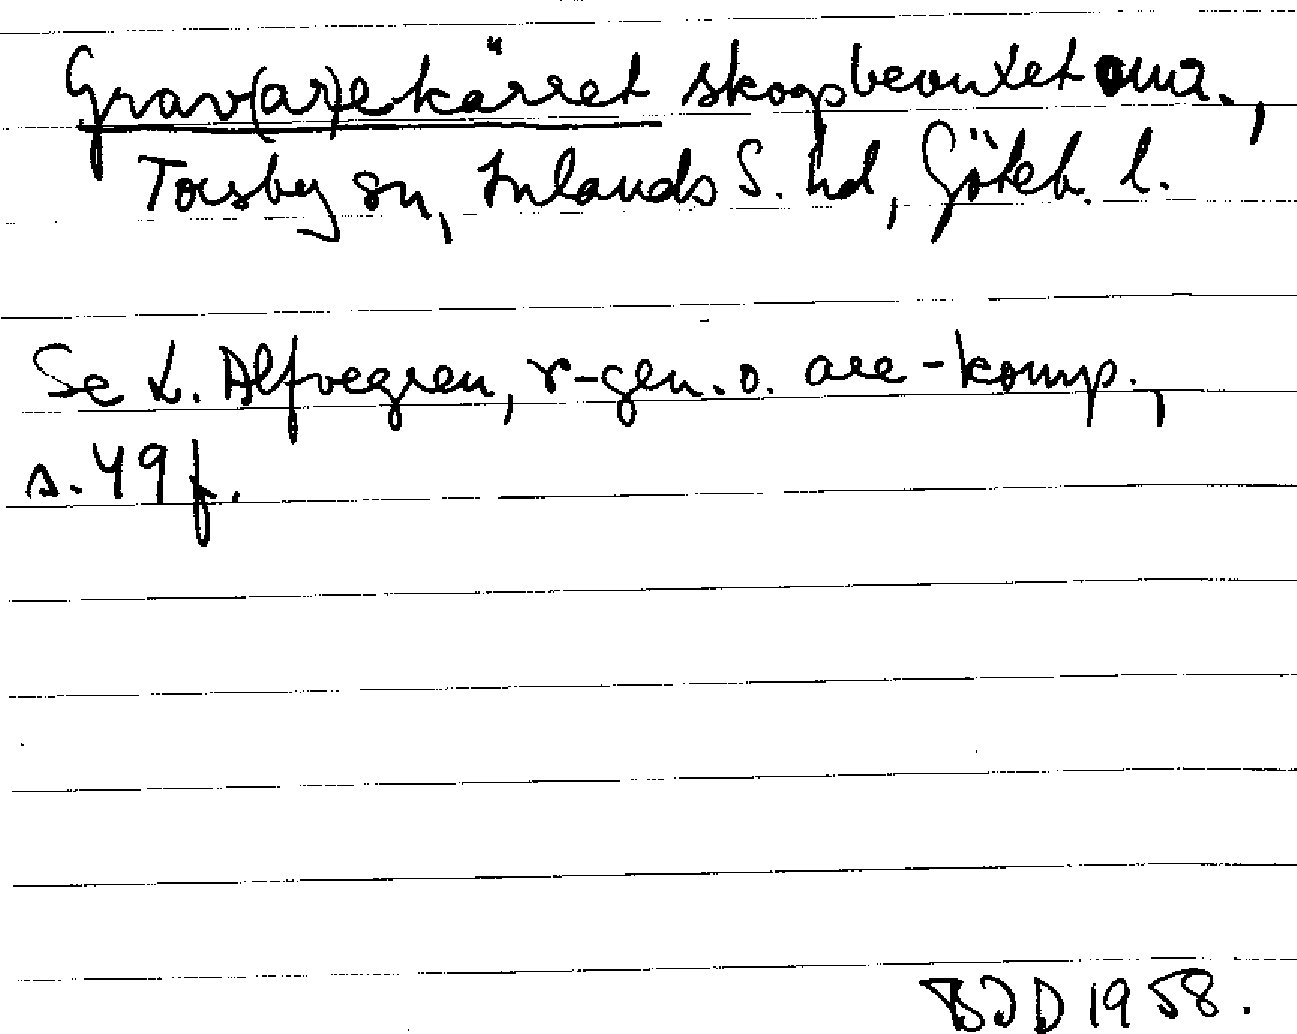 Grav(ar)ekärret skogsbevuxet omr.,
Torsby sn, Inlands S. hd, Göteb. l.
Se L. Alfvegren, r-gen. o. are-komp.,
s. 49 f.
BJD 1958.